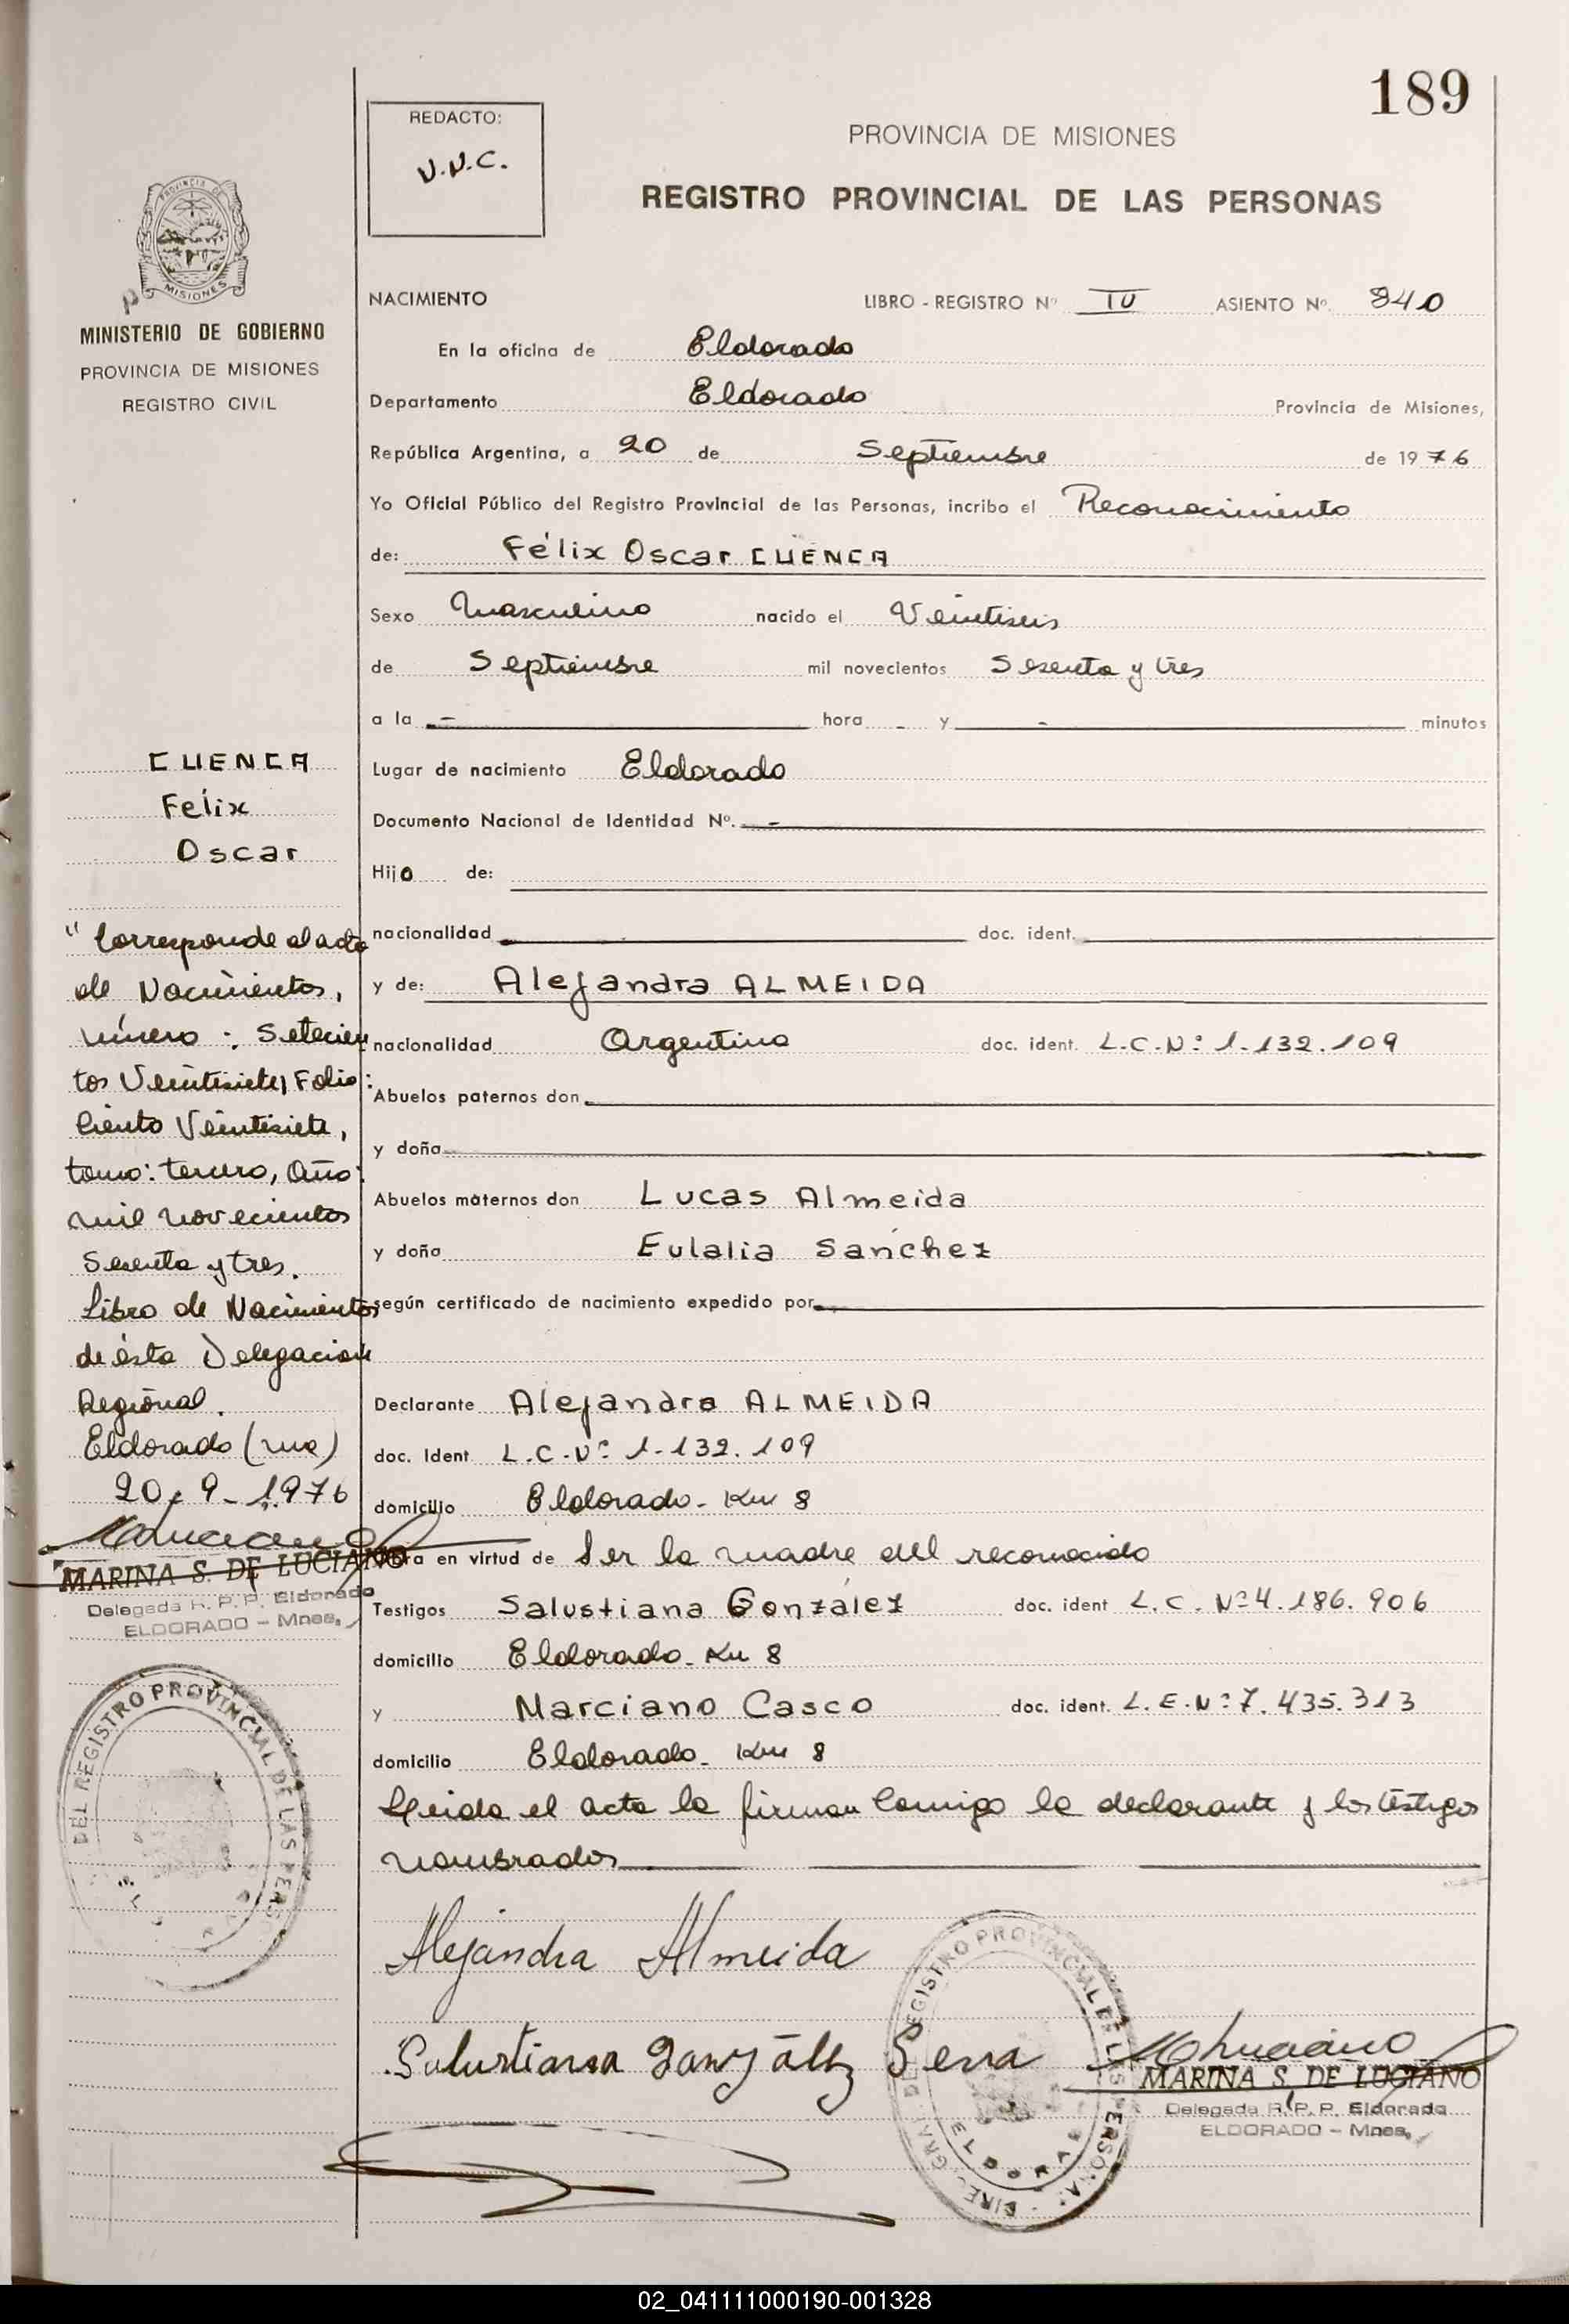 189
REDACTO:
V.N.C.
PROVINCIA DE MISIONES
REGISTRO PROVINCIAL DE LAS PERSONAS
PROVINCIA DE
MISIONES
MINISTERIO DE GOBIERNO
PROVINCIA DE MISIONES
REGISTRO CIVIL
NACIMIENTO LIBRO - REGISTRO Nº IV ASIENTO Nº. 840
En la oficina de Eldorado
Departamento Eldorado Provincia de Misiones,
República Argentina, a 20 de Septiembre de 1976
Yo Oficial Público del Registro Provincial de las Personas, incribo el Reconocimiento
de: Félix Oscar CUENCA
Sexo Masculino nacido el Veintiseis
de Septiembre mil novecientos Sesenta y tres
a la - hora - y - minutos
Lugar de nacimiento Eldorado
Documento Nacional de Identidad Nº. -
Hijo de:
nacionalidad doc. ident.
y de: Alejandra ALMEIDA
nacionalidad Argentina doc. ident. L.C.Nº 1.132.109
Abuelos paternos don
y doña
Abuelos maternos don Lucas Almeida
y doña Eulalia Sánchez
según certificado de nacimiento expedido por
Declarante Alejandra ALMEIDA
doc. Ident L.C.Nº 1.132.109
domicilio Eldorado - Km 8
en virtud de Ser la madre del reconocido
Testigos Salustiana González doc. ident L.C. Nº 4.186.906
domicilio Eldorado - Km 8
y Marciano Casco doc. ident. L.E.Nº 7.435.313
domicilio Eldorado - Km 8
Leida el acta la firman Conmigo la declarante y los testigos
nombrados
CUENCA
Felix
Oscar
"Corresponde al acta
de Nacimientos,
número: Setecien
tos Veintisiete, Folio:
Ciento Veintisiete,
tomo: tercero, Año:
mil novecientos
Sesenta y tres.
Libro de Nacimientos
de ésta Delegación
Regional.
Eldorado (mnes)
20-9-1976
MARINA S. DE LUCIANO
Delegada R. P. P. Eldorado
ELDORADO - Mnes.
DEL REGISTRO PROVINCIAL DE LAS PERS
Alejandra Almeida
Salustiana González Serra
MARINA S. DE LUCIANO
Delegada R. P. P. Eldorado
ELDORADO - Mnes.
DIREC. GRAL. DEL REGISTRO PROVINCIAL DE LAS PERSONAS
ELDORADO
02_041111000190-001328